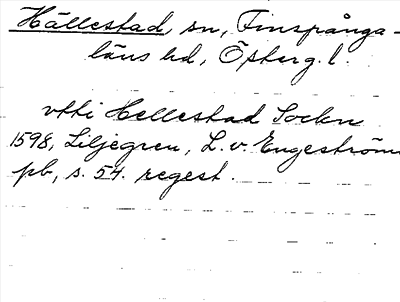 Hällestad, sn, Finspånga-
läns hd, Österg. l.
vtti Hellestad Sockn
1598, Liljegren, L. v. Engeström
pb, s. 54. regest.